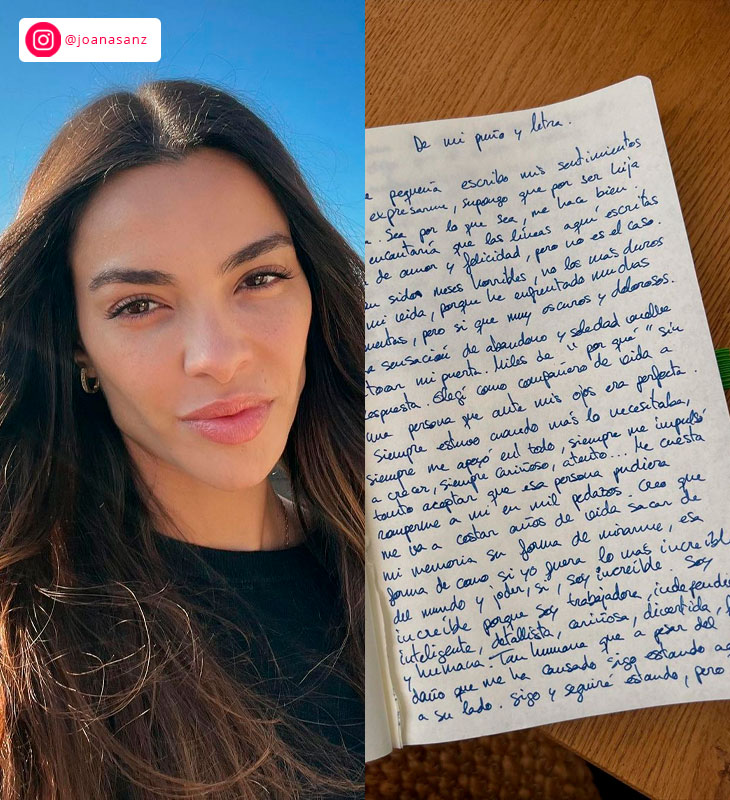 @joanasanz
De mi puño y letra.
pequeña escribo mis sentimientos
expresarme, supongo que por ser hija
. Sea por lo que sea, me hace bien.
encantaría que las líneas aquí escritas
de amor y felicidad, pero no es el caso.
sido meses horribles, no los más duros
mi vida, porque he enfrentado muchas
pero si que muy oscuros y dolorosos.
sensación de abandono y soledad vuelve
tocar mi puerta. Miles de "por qué" sin
respuesta. Elegí como compañero de vida a
una persona que ante mis ojos era perfecta.
Siempre estuvo cuando más lo necesitaba,
siempre me apoyó en todo, siempre me impulsó
a crecer, siempre cariñoso, atento... Me cuesta
tanto aceptar que esa persona pudiera
romperme a mi en mil pedazos. Creo que
me va a costar años de vida sacar de
mi memoria su forma de mirarme, esa
forma de como si yo fuera lo más increíbl
del mundo y joder, si, soy increíble. Soy
increíble porque soy trabajadora, independie
inteligente, detallista, cariñosa, divertida, f
y humana. Tan humana que a pesar del
daño que me ha causado sigo estando aq
a su lado. Sigo y seguiré estando, pero